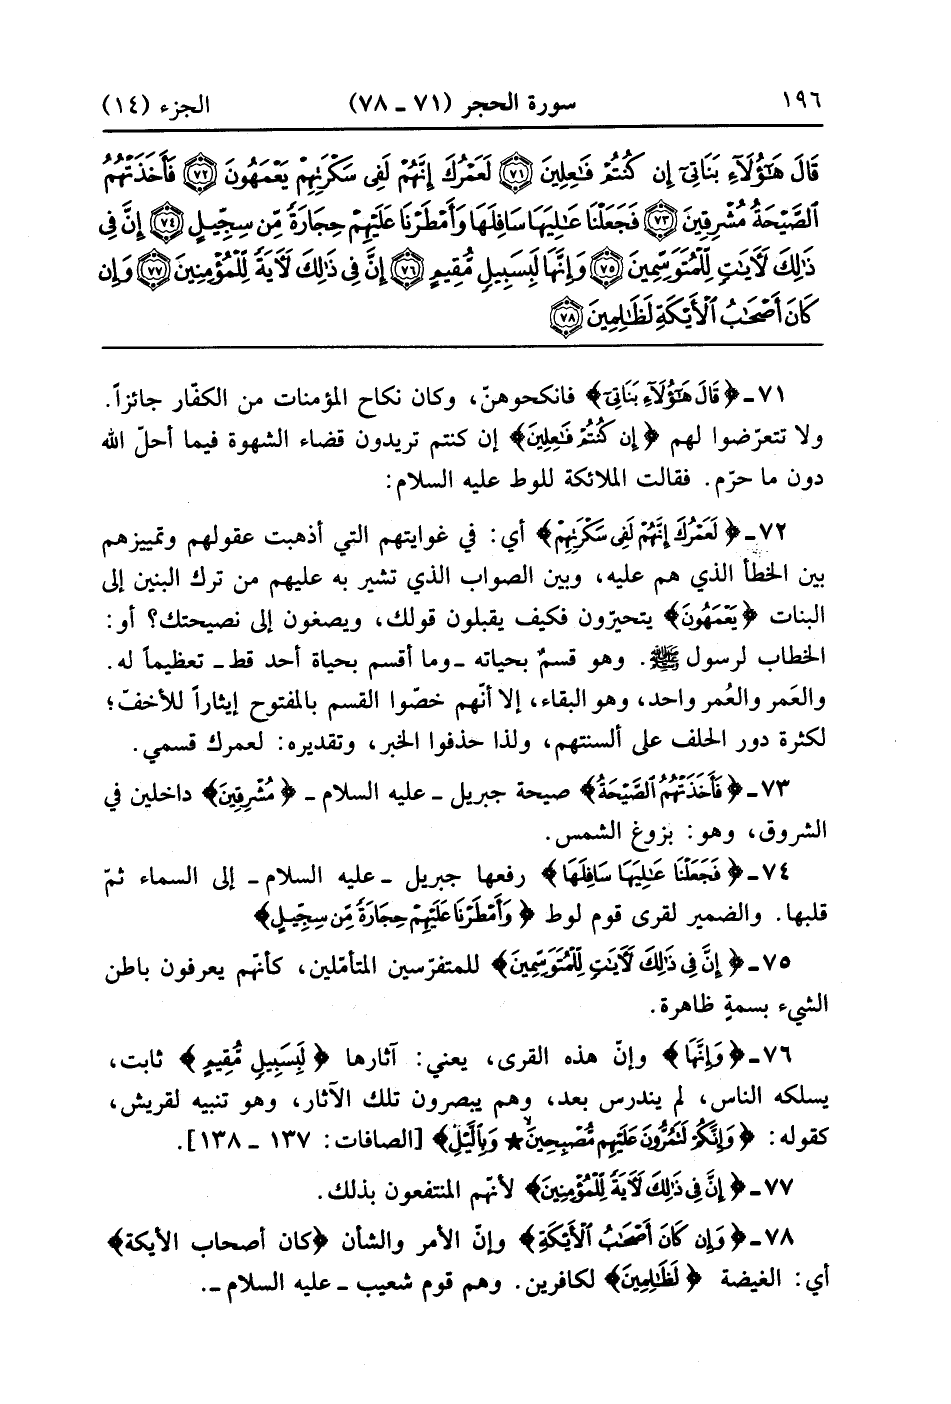 ١٩٦ سورة الحجر (٧١ ـ ٧٨) الجزء (١٤)
قَالَ هَٰٓؤُلَآءِ بَنَاتِىٓ إِن كُنتُمْ فَٰعِلِينَ ﴿٧١﴾ لَعَمْرُكَ إِنَّهُمْ لَفِى سَكْرَتِهِمْ يَعْمَهُونَ ﴿٧٢﴾ فَأَخَذَتْهُمُ
ٱلصَّيْحَةُ مُشْرِقِينَ ﴿٧٣﴾ فَجَعَلْنَا عَٰلِيَهَا سَافِلَهَا وَأَمْطَرْنَا عَلَيْهِمْ حِجَارَةً مِّن سِجِّيلٍ ﴿٧٤﴾ إِنَّ فِى
ذَٰلِكَ لَءَايَٰتٍ لِّلْمُتَوَسِّمِينَ ﴿٧٥﴾ وَإِنَّهَا لَبِسَبِيلٍ مُّقِيمٍ ﴿٧٦﴾ إِنَّ فِى ذَٰلِكَ لَءَايَةً لِّلْمُؤْمِنِينَ ﴿٧٧﴾ وَإِن
كَانَ أَصْحَٰبُ ٱلْأَيْكَةِ لَظَٰلِمِينَ ﴿٧٨﴾
٧١ـ ﴿قَالَ هَٰٓؤُلَآءِ بَنَاتِىٓ﴾ فانكحوهنّ، وكان نكاح المؤمنات من الكفّار جائزاً.
ولا تتعرّضوا لهم ﴿إِن كُنتُمْ فَٰعِلِينَ﴾ إن كنتم تريدون قضاء الشهوة فيما أحلّ الله
دون ما حرّم. فقالت الملائكة للوط عليه السلام:
٧٢ـ ﴿لَعَمْرُكَ إِنَّهُمْ لَفِى سَكْرَتِهِمْ﴾ أي: في غوايتهم التي أذهبت عقولهم وتمييزهم
بين الخطأ الذي هم عليه، وبين الصواب الذي تشير به عليهم من ترك البنين إلى
البنات ﴿يَعْمَهُونَ﴾ يتحيّرون فكيف يقبلون قولك، ويصغون إلى نصيحتك؟ أو:
الخطاب لرسول ﷺ. وهو قسمٌ بحياته ـوما أقسم بحياة أحد قطـ تعظيماً له.
والعَمر والعُمر واحد، وهو البقاء، إلا أنّهم خصّوا القسم بالمفتوح إيثاراً للأخفّ؛
لكثرة دور الحلف على ألسنتهم، ولذا حذفوا الخبر، وتقديره: لعمرك قسمي.
٧٣ـ ﴿فَأَخَذَتْهُمُ ٱلصَّيْحَةُ﴾ صيحة جبريل ـ عليه السلام ـ ﴿مُشْرِقِينَ﴾ داخلين في
الشروق، وهو: بزوغ الشمس.
٧٤ـ ﴿فَجَعَلْنَا عَٰلِيَهَا سَافِلَهَا﴾ رفعها جبريل ـ عليه السلام ـ إلى السماء ثمّ
قلبها. والضمير لقرى قوم لوط ﴿وَأَمْطَرْنَا عَلَيْهِمْ حِجَارَةً مِّن سِجِّيلٍ﴾
٧٥ـ ﴿إِنَّ فِى ذَٰلِكَ لَءَايَٰتٍ لِّلْمُتَوَسِّمِينَ﴾ للمتفرّسين المتأمّلين، كأنّهم يعرفون باطن
الشيء بسمةٍ ظاهرة.
٧٦ـ ﴿وَإِنَّهَا﴾ وإنّ هذه القرى، يعني: آثارها ﴿لَبِسَبِيلٍ مُّقِيمٍ﴾ ثابت،
يسلكه الناس، لم يندرس بعد، وهم يبصرون تلك الآثار، وهو تنبيه لقريش،
كقوله: ﴿وَإِنَّكُمْ لَتَمُرُّونَ عَلَيْهِم مُّصْبِحِينَ ★ وَبِٱلَّيْلِ﴾ [الصافات: ١٣٧ ـ ١٣٨].
٧٧ـ ﴿إِنَّ فِى ذَٰلِكَ لَءَايَةً لِّلْمُؤْمِنِينَ﴾ لأنّهم المنتفعون بذلك.
٧٨ـ ﴿وَإِن كَانَ أَصْحَٰبُ ٱلْأَيْكَةِ﴾ وإنّ الأمر والشأن ﴿كان أصحاب الأيكة﴾
أي: الغيضة ﴿لَظَٰلِمِينَ﴾ لكافرين. وهم قوم شعيب ـ عليه السلام ـ.